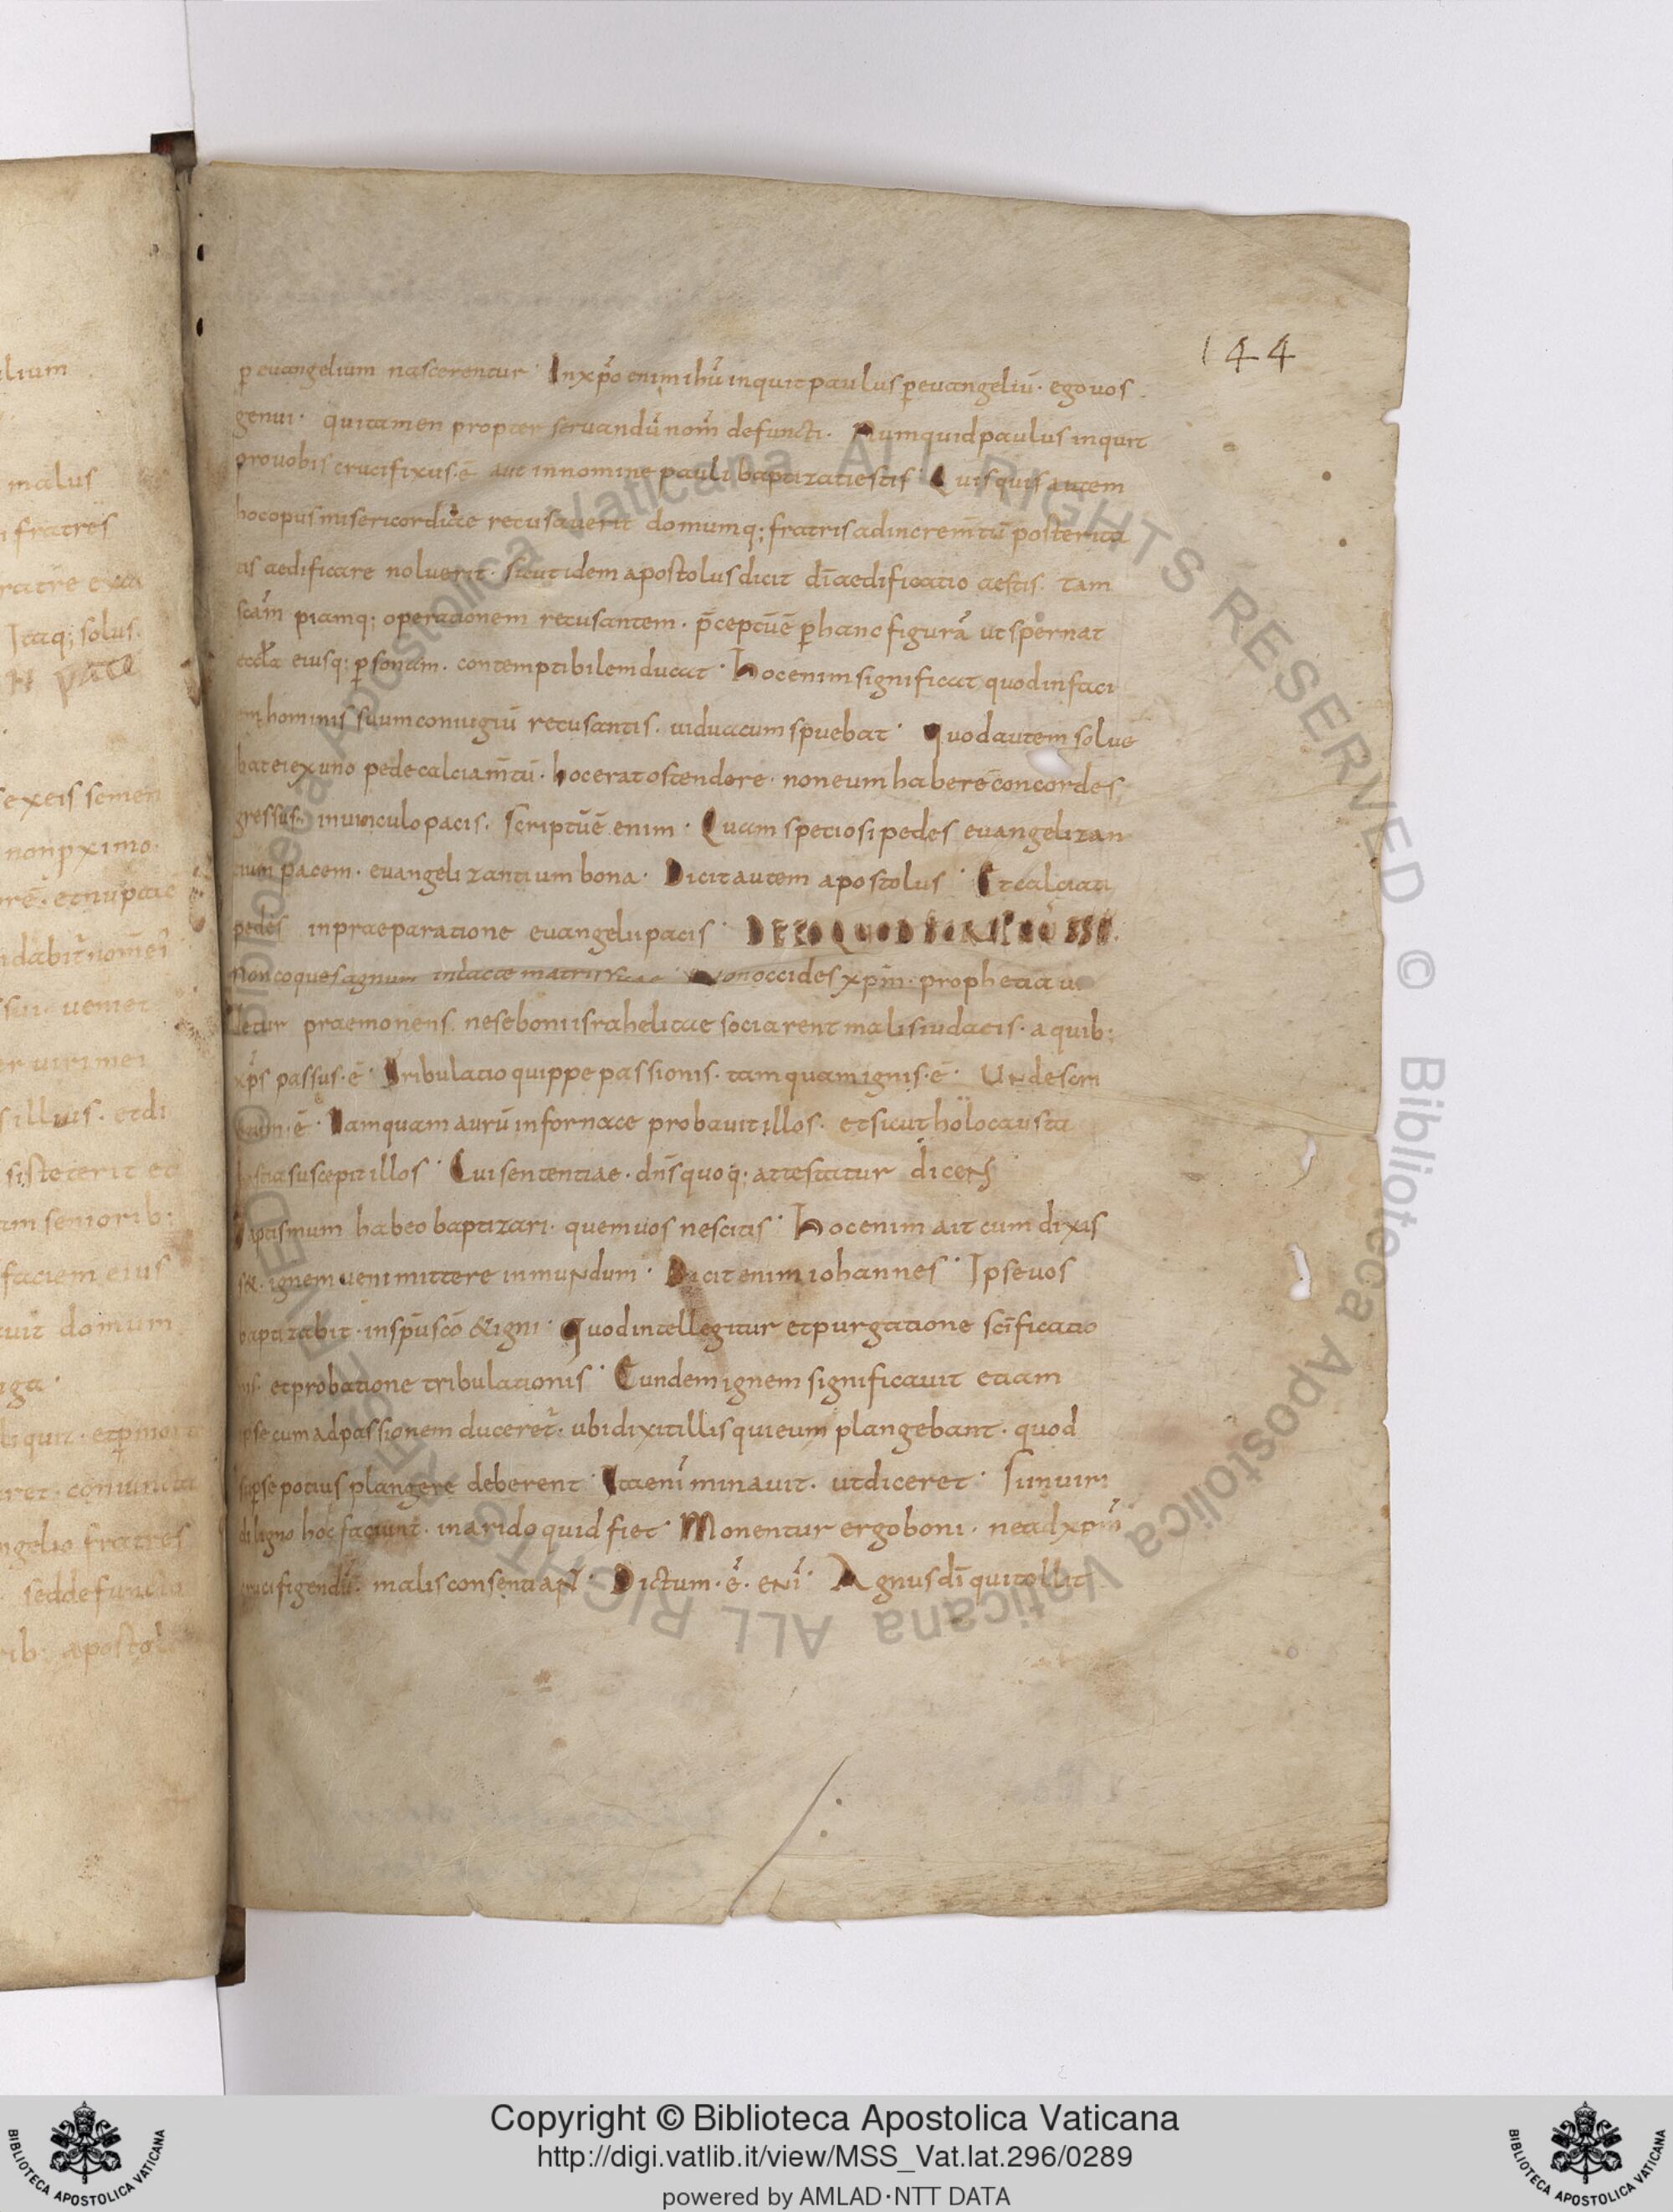 144
ꝑ euangelium nascerentur · In xp̄o enim ihū inquit paulus ꝑ euangeliū · ego uos
genui · qui tamen propter seruandū nom̄ defuncti · Numquid paulus inquit
pro uobis crucifixus · ē aut in nomine pauli baptizati estis · Quisquis autem
hoc opus misericordiae recusauerit domumq; fratris ad increm̄tū posterita
tis aedificare noluerit · sicut idem apostolus dicit dī aedificatio aestis · tam
scām piamq; operationem recusantem · p̄ceptū ē ꝑ hanc figurā ut spernat
eccła eiusq; ꝑsonam · contemptibilem ducat · Hoc enim significat quod in faci
em hominis suum coniugiū recusantis · uidua cum spuebat · Quod autem solue
bat ei ex uno pede calciam̄tū · hoc erat ostendere · non eum habere concordes
gressus · in uinculo pacis · scriptū ē enim · Quam speciosi pedes euangelizan
tium pacem · euangelizantium bona · Dicit autem apostolus · Et calciati
pedes in praeparatione euangelii pacis · DE EO QUOD
Non coques agnum in lacte matris · Non occides xp̄m · prophetia
detur praemonens · ne se boni israhelitae sociarent malis iudaeis · a quib;
xp̄s passus · ē · Tribulatio quippe passionis · tamquam ignis · ē · Unde scrip
tum · ē · Tamquam aurū in fornace probauit illos · et sicut holocausta
hostia suscepit illos · Cui sententiae · dn̄s quoq; attestatur dicens ·
Baptismum habeo baptizari · quem uos nescitis · Hoc enim ait cum dixis
s& · ignem ueni mittere in mundum · Dicit enim iohannes · Ipse uos
baptizabit · in sp̄u scō & igni · Quod intellegitur et purgatione scīficatio
nis · et probatione tribulationis · Eundem ignem significauit etiam
ipse cum ad passionem duceret̄ · ubi dixit illis qui eum plangebant · quod
se ipse potius plangere deberent · Ita enī minauit · ut diceret · Si in uiri
di ligno hoc faciunt · in arido quid fiet · Monentur ergo boni · ne ad xp̄m
crucifigendū · malis consentian̄t · Dictum · ē · enī · Agnus dī qui tollit
Copyright © Biblioteca Apostolica Vaticana
http://digi.vatlib.it/view/MSS_Vat.lat.296/0289
powered by AMLAD·NTT DATA
BIBLIOTECA APOSTOLICA VATICANA
BIBLIOTECA APOSTOLICA VATICANA